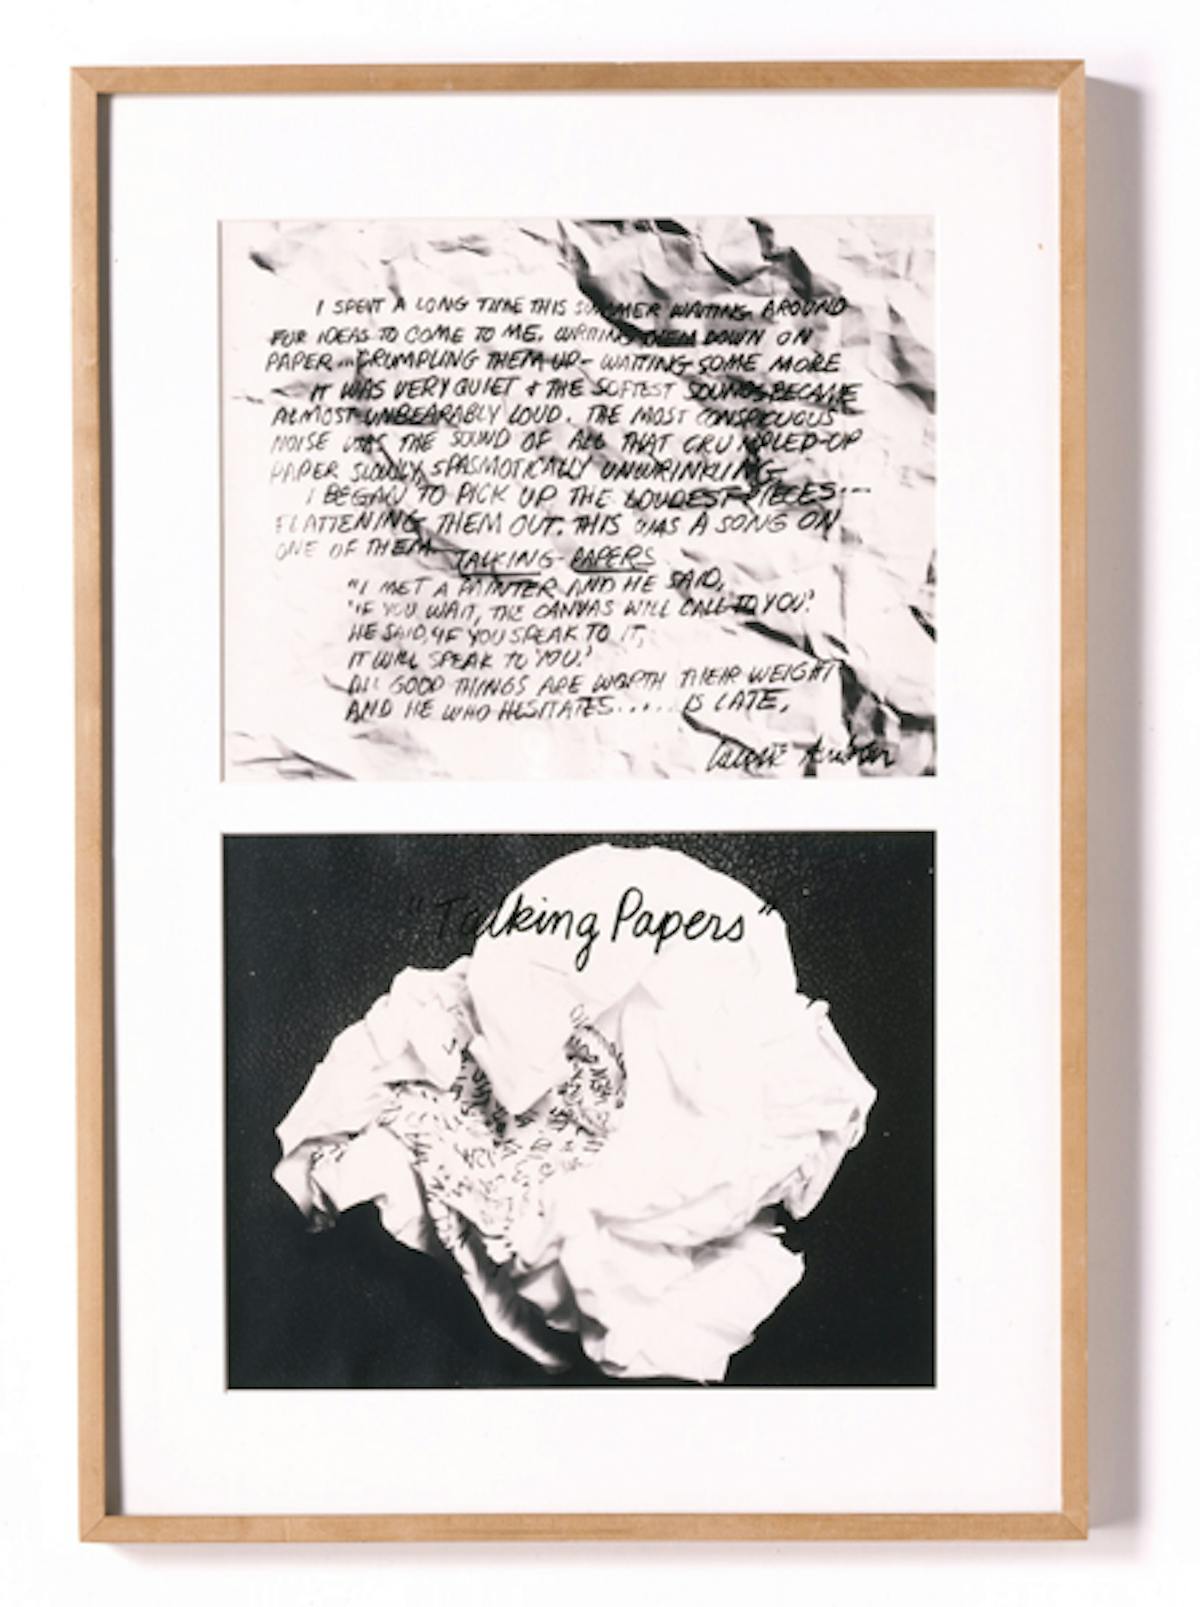 I SPENT A LONG TIME THIS SUMMER WAITING AROUND
FOR IDEAS TO COME TO ME. WRITING THEM DOWN ON
PAPER... CRUMPLING THEM UP - WAITING SOME MORE
IT WAS VERY QUIET & THE SOFTEST SOUNDS BECAME
ALMOST UNBEARABLY LOUD. THE MOST CONSPICUOUS
NOISE WAS THE SOUND OF ALL THAT CRUMPLED-UP
PAPER SLOWLY, SPASMOTICALLY UNWRINKLING
I BEGAN TO PICK UP THE LOUDEST PIECES...
FLATTENING THEM OUT. THIS WAS A SONG ON
ONE OF THEM
TALKING PAPERS
"I MET A PAINTER AND HE SAID,
'IF YOU WAIT, THE CANVAS WILL CALL TO YOU.'
HE SAID, 'IF YOU SPEAK TO IT,
IT WILL SPEAK TO YOU.'
ALL GOOD THINGS ARE WORTH THEIR WEIGHT
AND HE WHO HESITATES..... IS LATE.
"Talking Papers"